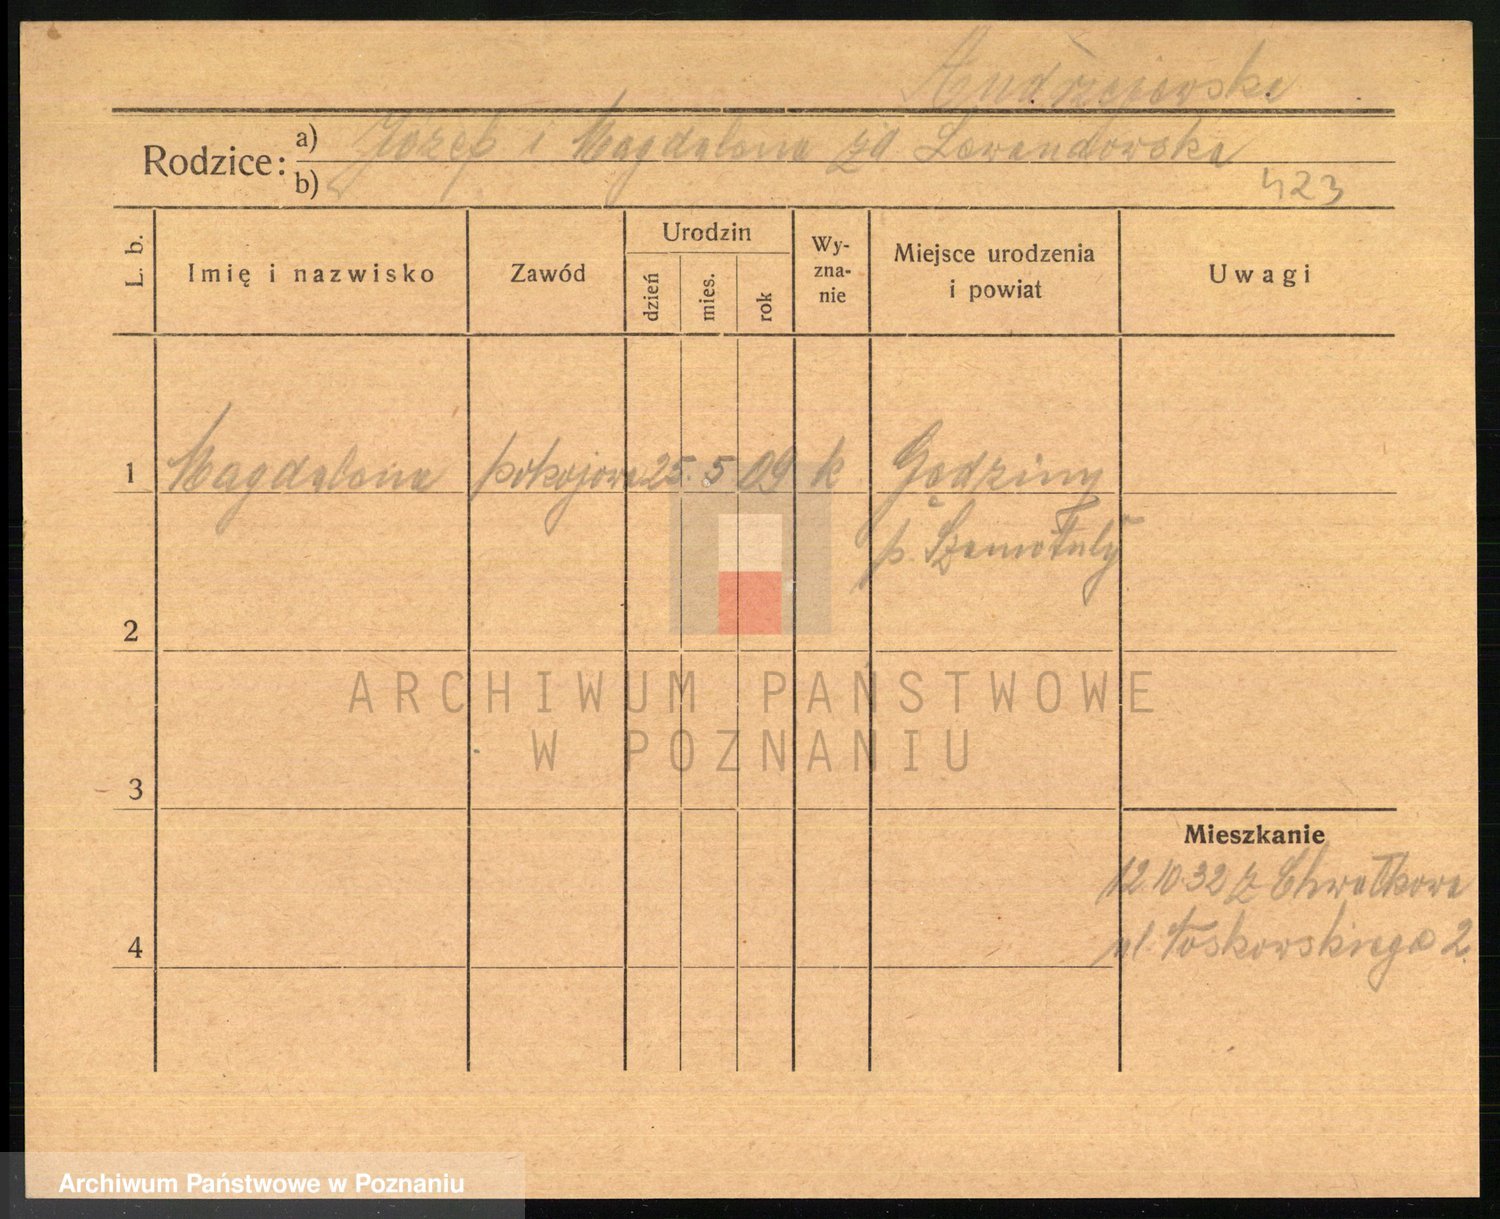 Andrzejewska
Rodzice:
a) Józef i Magdalena zd Lewandowska
b)
423
L. b.
Imię i nazwisko
Zawód
Urodzin
dzień
mies.
rok
Wy-
zna-
nie
Miejsce urodzenia
i powiat
Uwagi
1 Magdalena pokojowa 25. 5 09 k
p. Szamotuły
2
3
4
Mieszkanie
12.10.32 z Chwałkowa
ul. 2.
ARCHIWUM PAŃSTWOWE
W POZNANIU
Archiwum Państwowe w Poznaniu